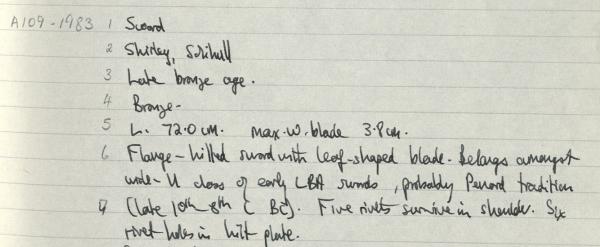 A109-1983 1 Sword
2 Shirley, Solihull
3 Late bronze age.
4 Bronze.
5 L. 72.0 cm. max.w.blade 3.8cm.
6 Flange-hilted sword with leaf-shaped blade. Belongs amongst
wide-U class of early LBA swords, probably Penard tradition
7 (late 10th-8th C BC). Five rivets survive in shoulder. Six
rivet holes in hilt plate.